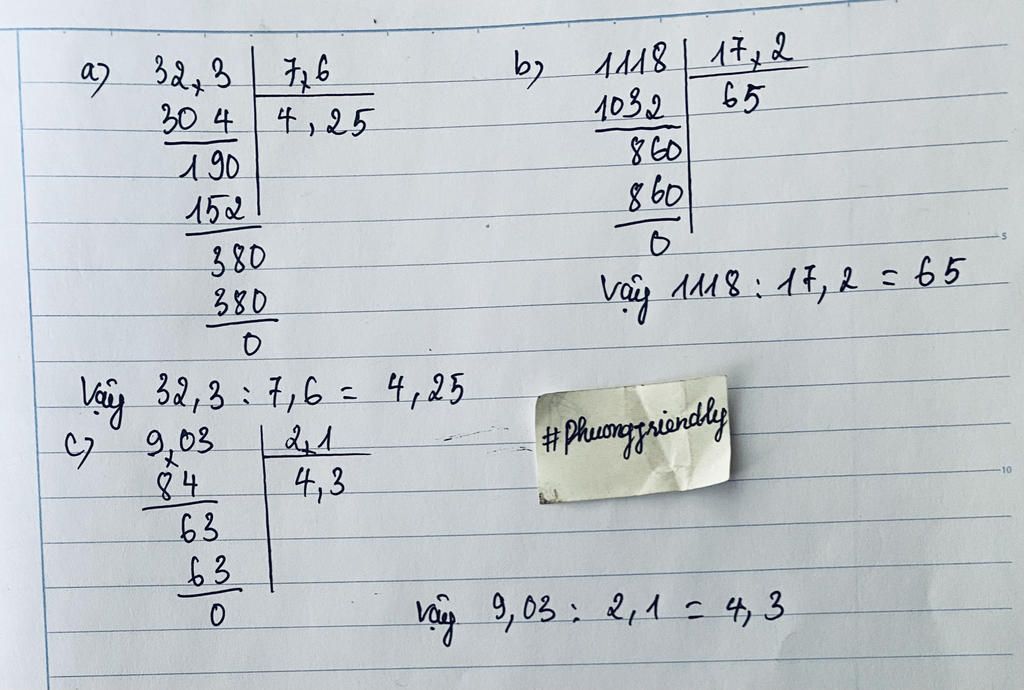 a) 32,3 | 7,6
304 | 4,25
190
152
380
380
0
Vậy 32,3 : 7,6 = 4,25
b) 1118 | 17,2
1032 | 65
860
860
0
Vậy 1118 : 17,2 = 65
c) 9,03 | 2,1
84 | 4,3
63
63
0
Vậy 9,03 : 2,1 = 4,3
#Phuongfriendly
5
10